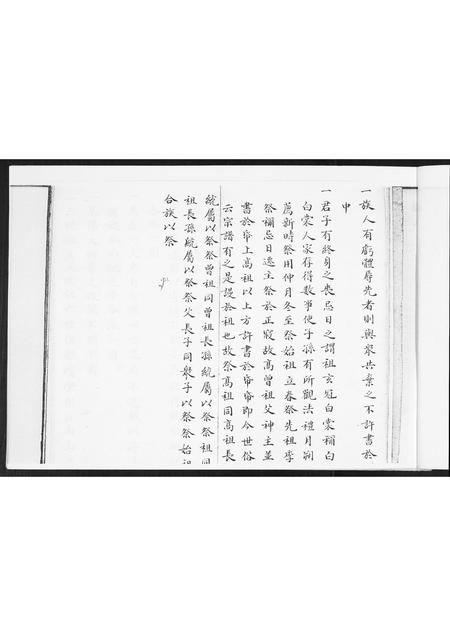 一族人有虧體辱先者則與衆共棄之不許書於
中
一君子有終身之喪忌日之謂祖玄冠白裳禰白
白裳人家存得數事使子孫有所觀法禮月朔
薦新時祭用仲月冬至祭始祖立春祭先祖季
祭禰忌日遷主祭於正寢故高曾祖父神主並
書於帝上高祖以上方許書於帝帝即今世俗
云宗譜有之是謾於祖也故祭高祖同高祖長
統屬以祭祭曾祖同曾祖長孫統屬以祭祭祖同
祖長孫統屬以祭祭父長子同衆子以祭祭始祖
合族以祭